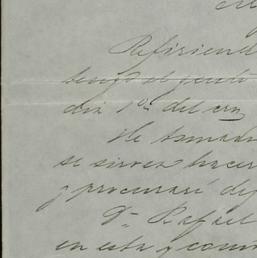 Refiriend
tengo el gusto
dia 1º del cr
He tomad
se sirva hacer
y procuraré de
Dn Rafael
en esta y com